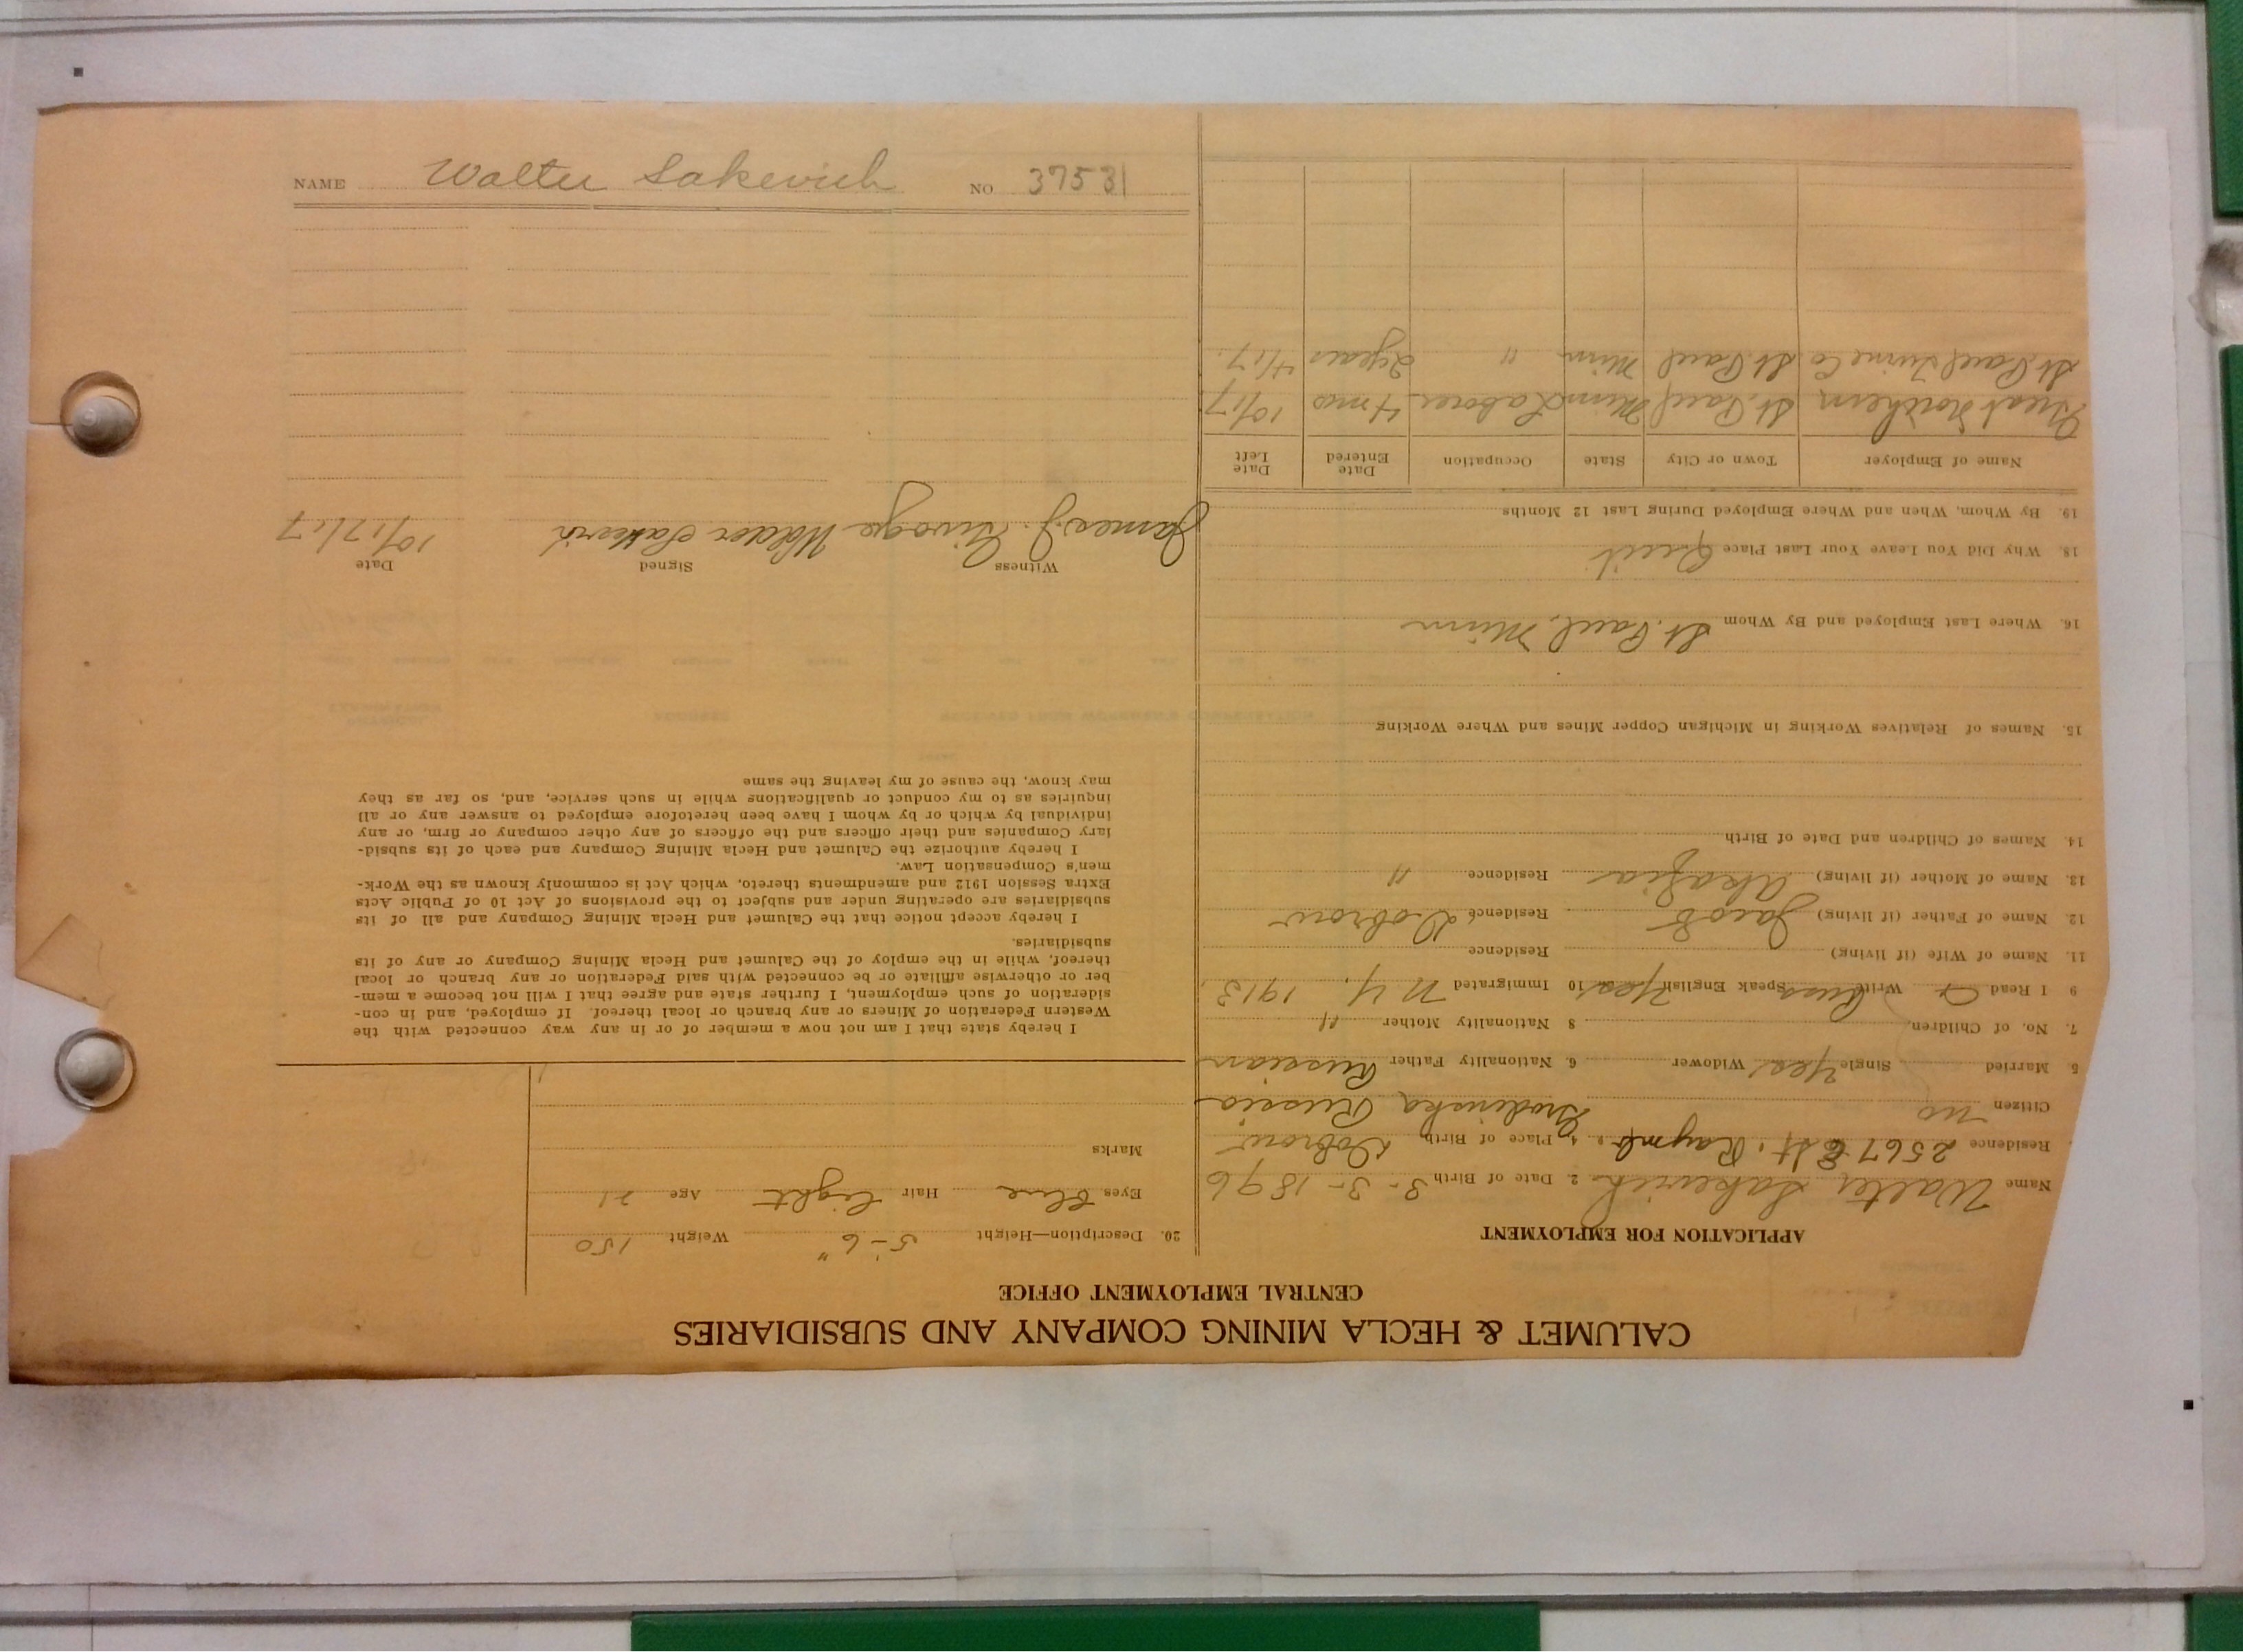 CALUMET & HECLA MINING COMPANY AND SUBSIDIARIES
CENTRAL EMPLOYMENT OFFICE
APPLICATION FOR EMPLOYMENT
Name Walter Sakevich 2. Date of Birth 3-3-1896
Residence 2567 E St. Raymb. 4. Place of Birth Dobrow
Citizen no Grodinska Russia
5 Married Single Yes Widower 6. Nationality Father Russian
7. No. of Children 8 Nationality Mother "
9 I Read & Write Russ Speak English Yes 10 Immigrated N.Y. 1913
11. Name of Wife (if living) Residence
12. Name of Father (if living) Jacob Residence Dobrow
13. Name of Mother (if living) Residence "
14. Names of Children and Date of Birth
15. Names of Relatives Working in Michigan Copper Mines and Where Working
16. Where Last Employed and By Whom St. Paul, Minn
18. Why Did You Leave Your Last Place Quit
19. By Whom, When and Where Employed During Last 12 Months
Name of Employer Town or City State Occupation Date Entered Date Left
Great Northern St. Paul Minn Laborer 4 mos 10/17
St. Paul Twine Co. St. Paul Minn " 2 years 4/17.
20. Description—Height 5'-6" Weight 150
Eyes blue Hair light Age 21
Marks
I hereby state that I am not now a member of or in any way connected with the
Western Federation of Miners or any branch or local thereof. If employed, and in con-
sideration of such employment, I further state and agree that I will not become a mem-
ber or otherwise affiliate or be connected with said Federation or any branch or local
thereof, while in the employ of the Calumet and Hecla Mining Company or any of its
subsidiaries.
I hereby accept notice that the Calumet and Hecla Mining Company and all of its
subsidiaries are operating under and subject to the provisions of Act 10 of Public Acts
Extra Session 1912 and amendments thereto, which Act is commonly known as the Work-
men's Compensation Law.
I hereby authorize the Calumet and Hecla Mining Company and each of its subsid-
iary Companies and their officers and the officers of any other company or firm, or any
individual by which or by whom I have been heretofore employed to answer any or all
inquiries as to my conduct or qualifications while in such service, and, so far as they
may know, the cause of my leaving the same
Witness Signed Date
James J. Walder Sakevich 10/17/17
NAME Walter Sakevich NO 37531